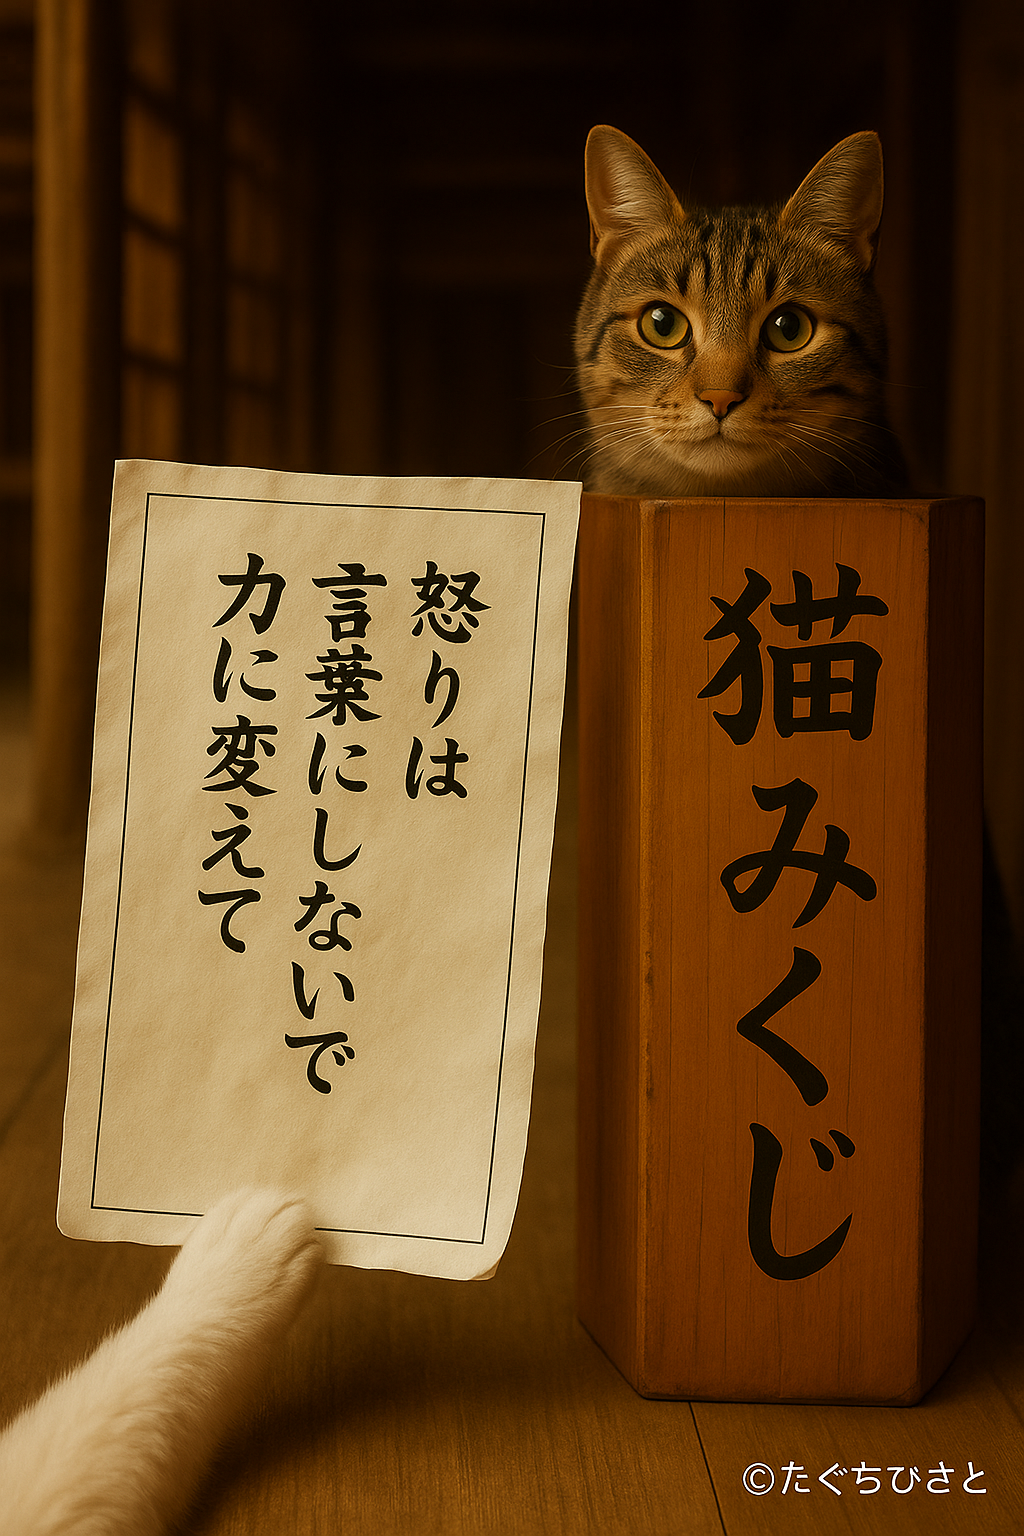 怒りは
言葉にしないで
力に変えて
猫みくじ
©たぐちひさと